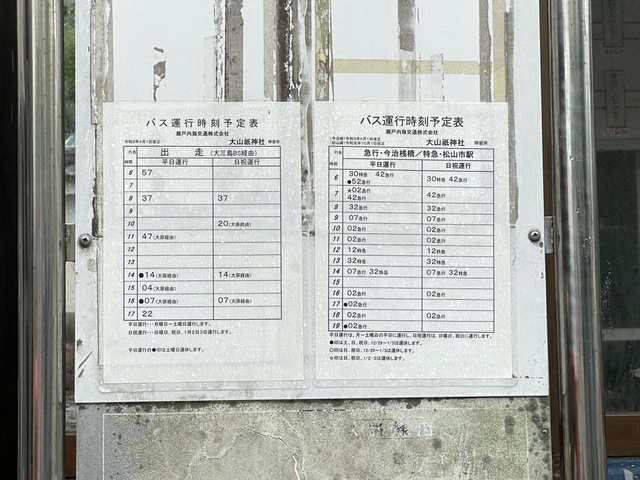 バス運行時刻予定表
瀬戸内海交通株式会社
令和3年4月1日改正 大山祇神社 停留所
行先 出 走 (大三島BS経由)
時間 平日運行 日祝運行
6 57
7
8 37 37
9
10 20(大原経由)
11 47(大原経由)
12
13
14 ●14(大原経由) 14(大原経由)
15 04(大原経由)
16 ●07(大原経由) 07(大原経由)
17 22
平日運行・・・月曜日～土曜日運行します。
日祝運行・・・日曜日、祝日、1月2日3日運行します。
平日運行の●印は土曜日運休します。
バス運行時刻予定表
瀬戸内海交通株式会社
(今治線)令和3年4月1日改正
(松山線)令和元年10月1日改正 大山祇神社 停留所
行先 急行・今治桟橋／特急・松山市駅
時間 平日運行 日祝運行
6 30特急 42急行 30特急 42急行
●52急行
7 ☆02急行
42急行 42急行
8 32急行 32急行
9 07急行 07急行
10 02急行 02急行
11 02急行 02急行
12 12特急 12特急
13 32特急 32特急
14 07急行 32特急 07急行 32特急
15
16 02急行 02急行
17 ●02急行
18 02急行 02急行
19 ●02急行
平日運行は、月～土曜日の平日に運行し、日祝運行は、日曜日、祝日に運行します。
●印は土、日、祝日、12/29～1/3は運休します。
○印は日、祝日、12/29～1/3は運休します。
☆印は日、祝日、1/2～3は運休します。